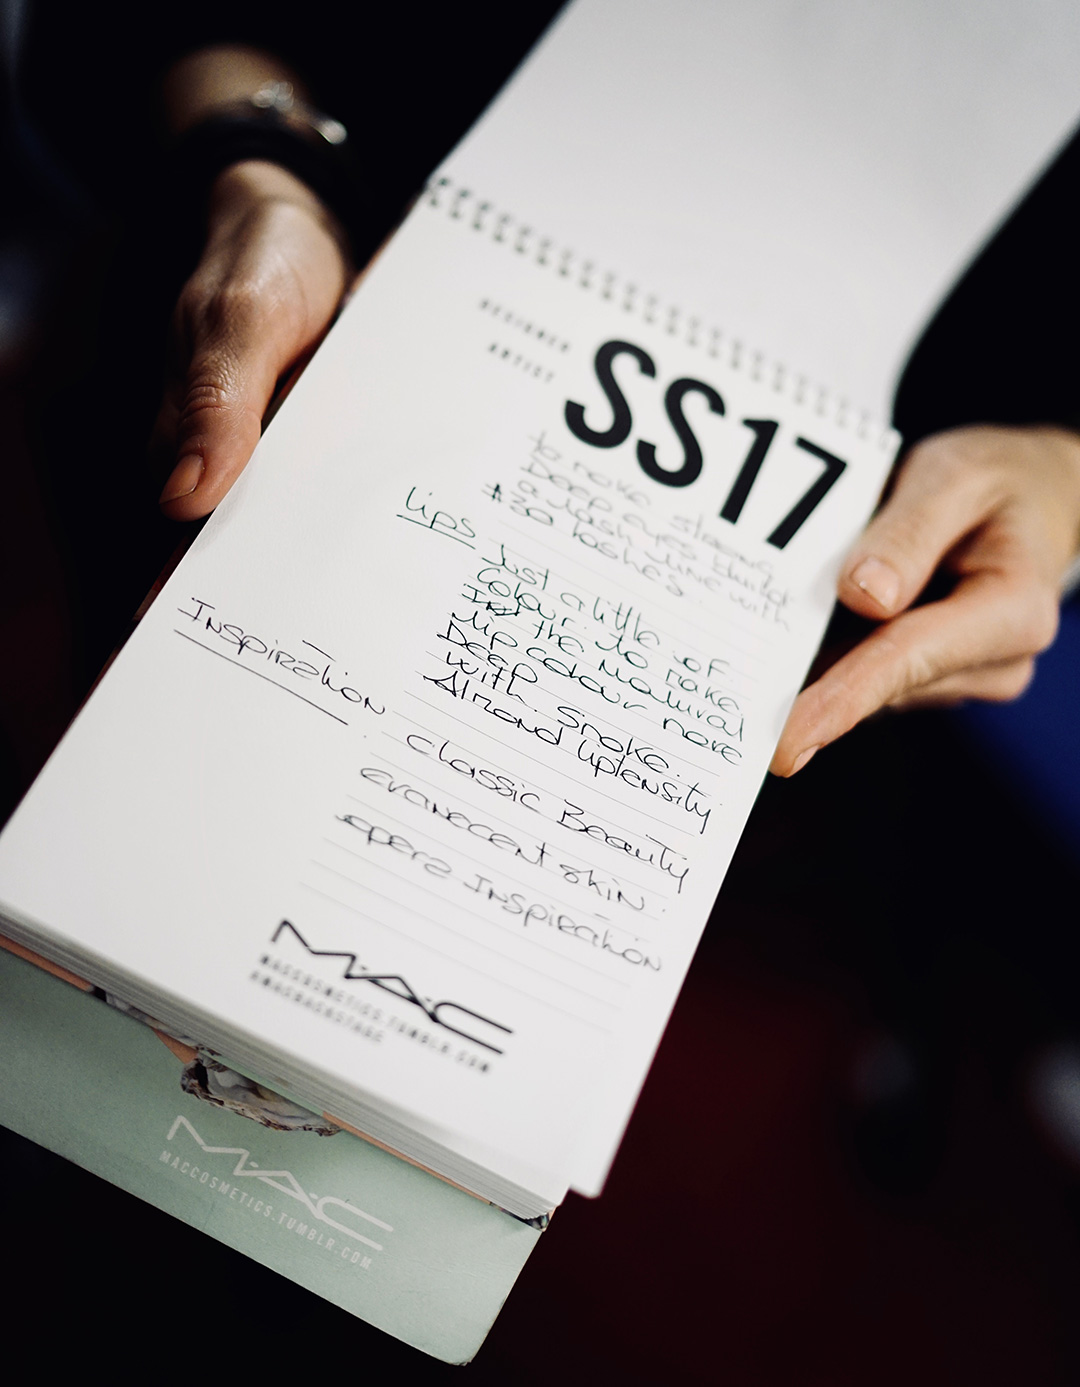 SS17
DESIGNER
ARTIST
to make strong
Deep eyes build
a lash line with
#30 lashes.
lips
Just a little of
Colour. to make
the natural
lip colour more
Deep
with. Smoke.
Strand liptensity
Inspiration
classic Beauty
evanecent skin.
opera Inspiration
MAC
MACCOSMETICS.TUMBLR.COM
#MACBACKSTAGE
MAC
MACCOSMETICS.TUMBLR.COM